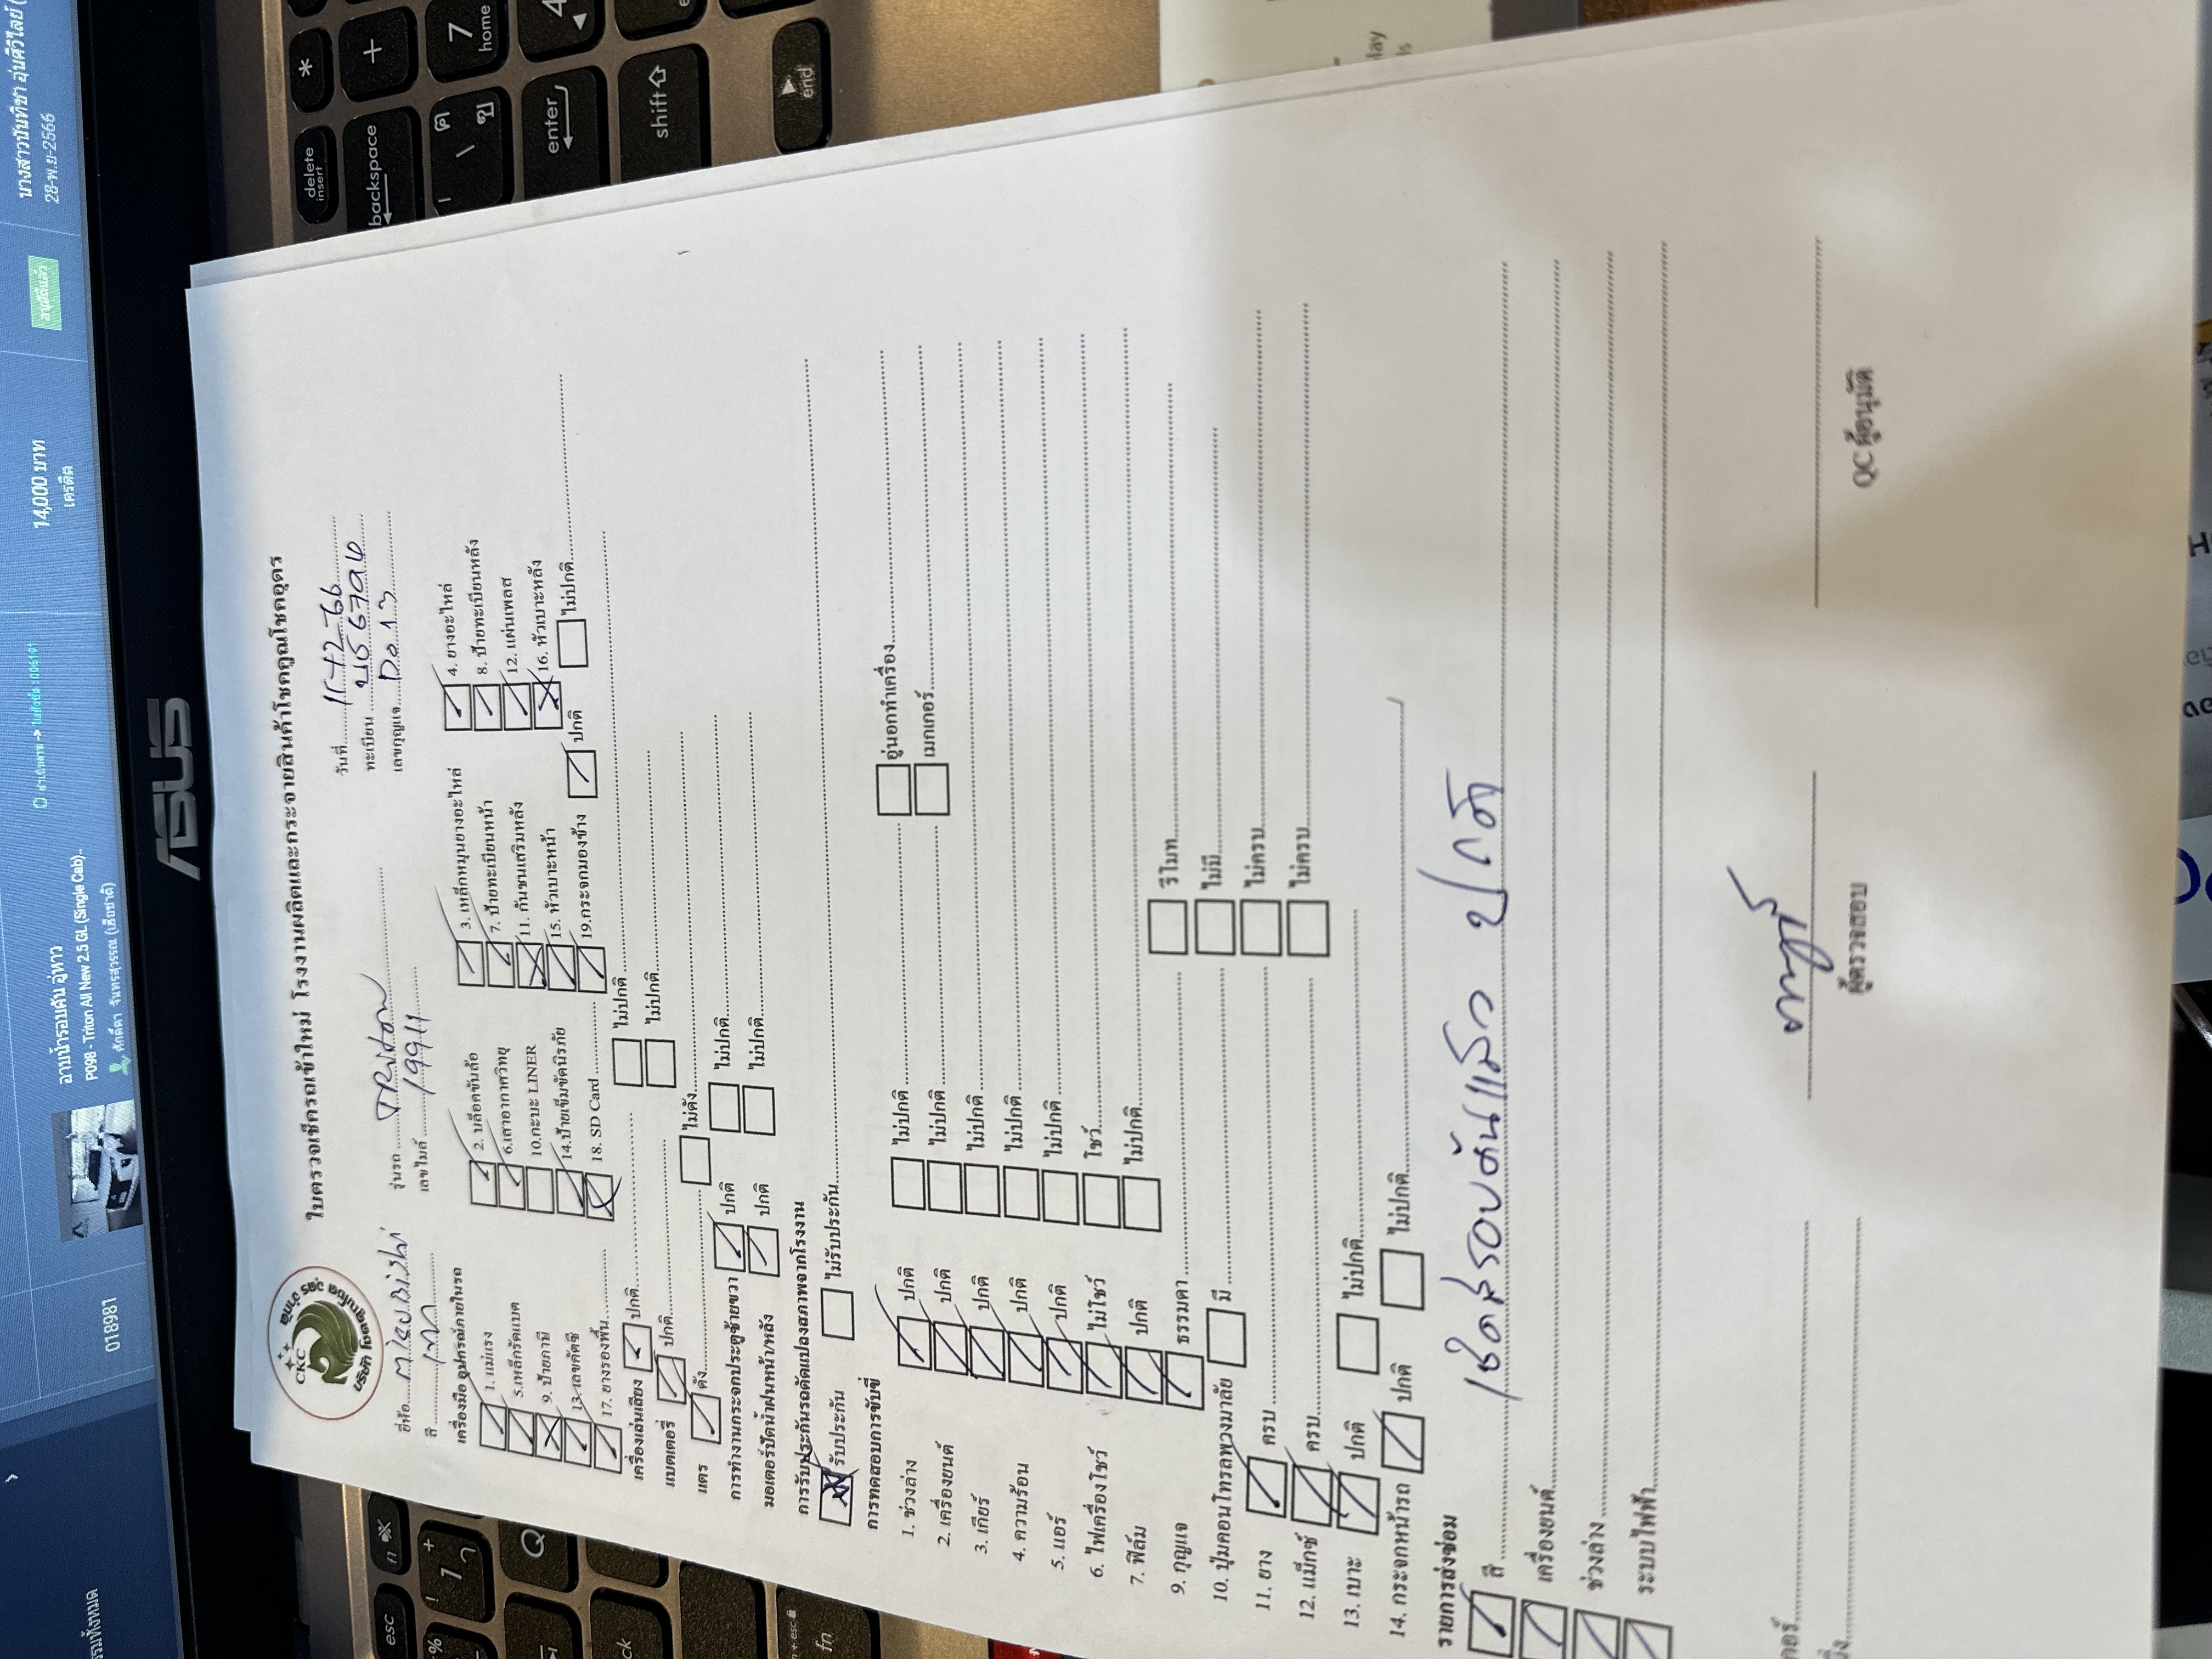 ใบตรวจเช็ครถเข้าใหม่ โรงงานผลิตและกระจายสินค้าโชคคูณโชคอุดร
CKC
บริษัท โชคคูณโชค
ยี่ห้อ
รุ่นรถ Triton
วันที่
สี เทา
เลขไมล์ 19911
ทะเบียน
เลขกุญแจ
เครื่องมือ อุปกรณ์ภายในรถ
1. แม่แรง 2. บล็อคขันล้อ 3. เหล็กหมุนยางอะไหล่ 4. ยางอะไหล่
5.เหล็กรัดแบต 6.เสาอากาศวิทยุ 7. ป้ายทะเบียนหน้า 8. ป้ายทะเบียนหลัง
9. ป้ายภาษี 10.กะบะ LINER 11. กันชนเสริมหลัง 12. แผ่นเพลส
13.เลขคัตซี 14.ป้ายเข็มขัดนิรภัย 15. หัวเบาะหน้า 16. หัวเบาะหลัง
17. ยางรองพื้น 18. SD Card 19.กระจกมองข้าง ปกติ ไม่ปกติ
เครื่องเล่นเสียง ปกติ ไม่ปกติ
แบตเตอรี่ ปกติ ไม่ปกติ
แตร ดัง ไม่ดัง
การทำงานกระจกประตูซ้ายขวา ปกติ ไม่ปกติ
มอเตอร์ปัดน้ำฝนหน้า/หลัง ปกติ ไม่ปกติ
การรับประกันรถดัดแปลงสภาพจากโรงงาน
รับประกัน ไม่รับประกัน
การทดสอบการขับขี่
1. ช่วงล่าง ปกติ ไม่ปกติ อู่นอกทำเครื่อง
2. เครื่องยนต์ ปกติ ไม่ปกติ เมกเกอร์
3. เกียร์ ปกติ ไม่ปกติ
4. ความร้อน ปกติ ไม่ปกติ
5. แอร์ ปกติ ไม่ปกติ
6. ไฟเครื่องโชว์ ไม่โชว์ โชว์
7. ฟิล์ม ปกติ ไม่ปกติ
9. กุญแจ ธรรมดา รีโมท
10. ปุ่มคอนโทรลพวงมาลัย มี ไม่มี
11. ยาง ครบ ไม่ครบ
12. แม็กซ์ ครบ ไม่ครบ
13. เบาะ ปกติ ไม่ปกติ
14. กระจกหน้ารถ ปกติ ไม่ปกติ
รายการส่งซ่อม
สี เช็คสีรอบคันแล้ว ปกติ
เครื่องยนต์
ช่วงล่าง
ระบบไฟฟ้า
ผู้ตรวจสอบ
QC ผู้อนุมัติ
ASUS
018981
อาบน้ำรอบคัน อู่หาว
P098 - Triton All New 2.5 GL (Single Cab)..
14,000 บาท
เครดิต
อนุมัติแล้ว
28-พ.ย-2566
esc
fn
Q
delete
insert
backspace
enter
shift
end
7
home
4
+
*